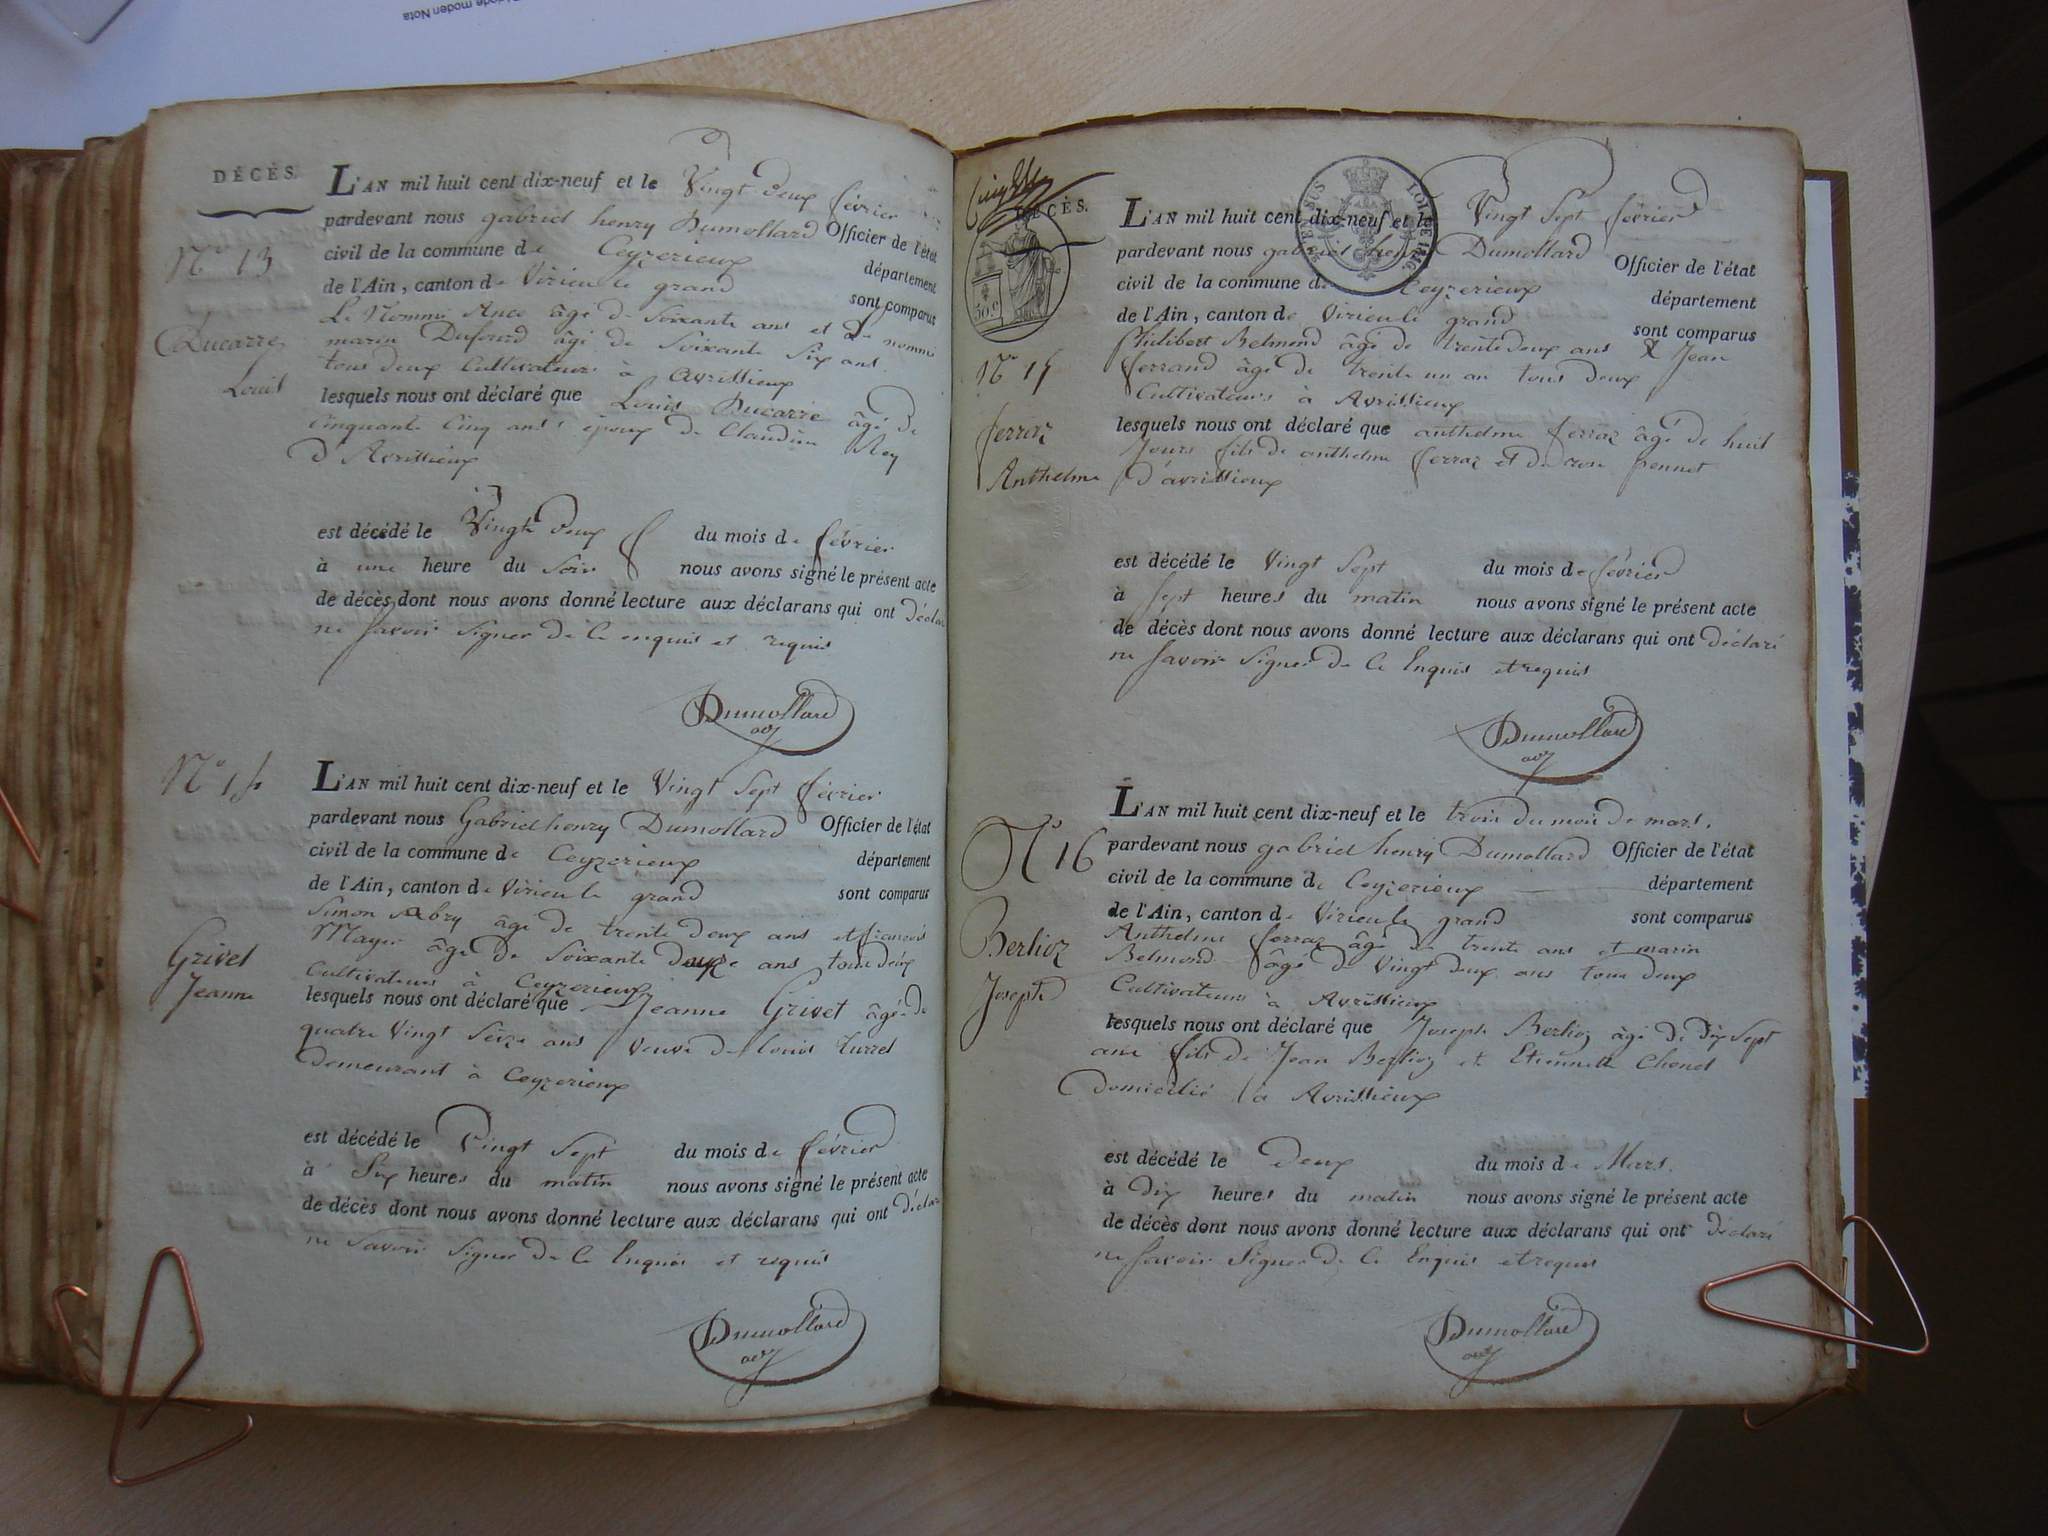 DÉCÈS.
N° 13
Ducarre
Louis
L'AN mil huit cent dix-neuf et le Vingt deux février
pardevant nous gabriel henry Dumollard Officier de l'état
civil de la commune de Ceyzerieux département
de l'Ain, canton de Virieu le grand sont comparus
Le Nommé Ance âgé de Soixante ans et Le nommé
marin Dufourd âgé de Soixante Six ans
tous deux Cultivateurs à Avrissieux
lesquels nous ont déclaré que Louis Ducarre âgé de
Cinquante Cinq ans époux de Claudine Rey
D'Avrissieux
est décédé le Vingt deux du mois de février
à une heure du Soir nous avons signé le présent acte
de décès dont nous avons donné lecture aux déclarans qui ont déclaré
ne Savoir Signer de ce enquis et requis
Dumollard
adj
N° 14
Grivet
Jeanne
L'AN mil huit cent dix-neuf et le Vingt Sept février
pardevant nous Gabriel henry Dumollard Officier de l'état
civil de la commune de Ceyzerieux département
de l'Ain, canton de Virieu le grand sont comparus
Simon Abry âgé de trente deux ans et françois
Mayer âgé de Soixante Douze ans tous deux
Cultivateurs à Ceyzerieux
lesquels nous ont déclaré que Jeanne Grivet âgée de
quatre Vingt Seize ans Veuve de louis turrel
Demeurant à Ceyzerieux
est décédé le Vingt Sept du mois de février
à Six heures du matin nous avons signé le présent acte
de décès dont nous avons donné lecture aux déclarans qui ont déclaré
ne Savoir Signer de ce Enquis et requis
Dumollard
adj
DÉCÈS.
50 c
LOI DE 1816
N° 15
ferraz
Anthelme
L'AN mil huit cent dix-neuf et le Vingt Sept février
pardevant nous gabriel henry Dumollard Officier de l'état
civil de la commune de Ceyzerieux département
de l'Ain, canton de Virieu le grand sont comparus
Philibert Belmond âgé de trente deux ans & Jean
ferrand âgé de trente un an tous deux
Cultivateurs à Avrissieux
lesquels nous ont déclaré que anthelme ferraz âgé de huit
Jours fils de anthelme ferraz et de rose pennet
D'avrissieux
est décédé le Vingt Sept du mois de février
à Sept heures du matin nous avons signé le présent acte
de décès dont nous avons donné lecture aux déclarans qui ont déclaré
ne Savoir Signer de ce Enquis et requis
Dumollard
adj
N° 16
Berlioz
Joseph
L'AN mil huit cent dix-neuf et le trois du mois de mars.
pardevant nous gabriel henry Dumollard Officier de l'état
civil de la commune de Ceyzerieux département
de l'Ain, canton de Virieu le grand sont comparus
Anthelme ferraz âgé de trente ans et marin
Belmond âgé de Vingt deux ans tous deux
Cultivateurs à Avrissieux
lesquels nous ont déclaré que Joseph Berlioz âgé de Dix Sept
ans fils de Jean Berlioz et Etiennette Chenel
Domicilié à Avrissieux
est décédé le deux du mois de Mars.
à Dix heures du matin nous avons signé le présent acte
de décès dont nous avons donné lecture aux déclarans qui ont déclaré
ne Savoir Signer de ce Enquis et requis
Dumollard
adj